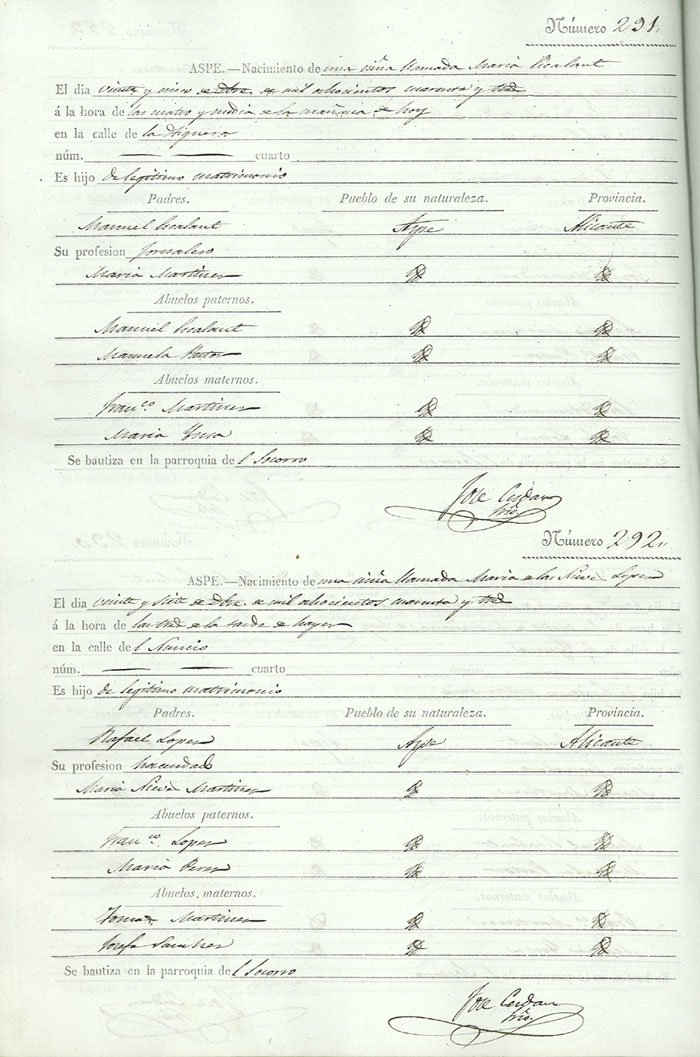 Número 291.
ASPE.—Nacimiento de una niña llamada Maria
El dia veinte y de Dbre. de mil ochocientos cuarenta y tres
á la hora de las cuatro y media de la mañana de hoy
en la calle de la
núm. — — cuarto
Es hijo de legitimo matrimonio
Padres. Pueblo de su naturaleza. Provincia.
Manuel Aspe Alicante
Su profesion Jornalero
Maria Martinez
Abuelos paternos.
Manuel
Manuela Pastor
Abuelos maternos.
Franco. Martinez
Maria
Se bautiza en la parroquia del Socorro
Jose Cerdan
Srio.
Número 292.
ASPE.—Nacimiento de una niña llamada Maria de las Nieve Lopez
El dia veinte y siete de Dbre. de mil ochocientos cuarenta y tres
á la hora de las tres de la tarde de hayer
en la calle del Nuncio
núm. — — cuarto
Es hijo de legitimo matrimonio
Padres. Pueblo de su naturaleza. Provincia.
Rafael Lopez Aspe Alicante
Su profesion hacendado
Maria Nieve Martinez
Abuelos paternos.
Franco. Lopez
Maria Perez
Abuelos maternos.
Tomas Martinez
Josefa Sanchez
Se bautiza en la parroquia del Socorro
Jose Cerdan
Srio.